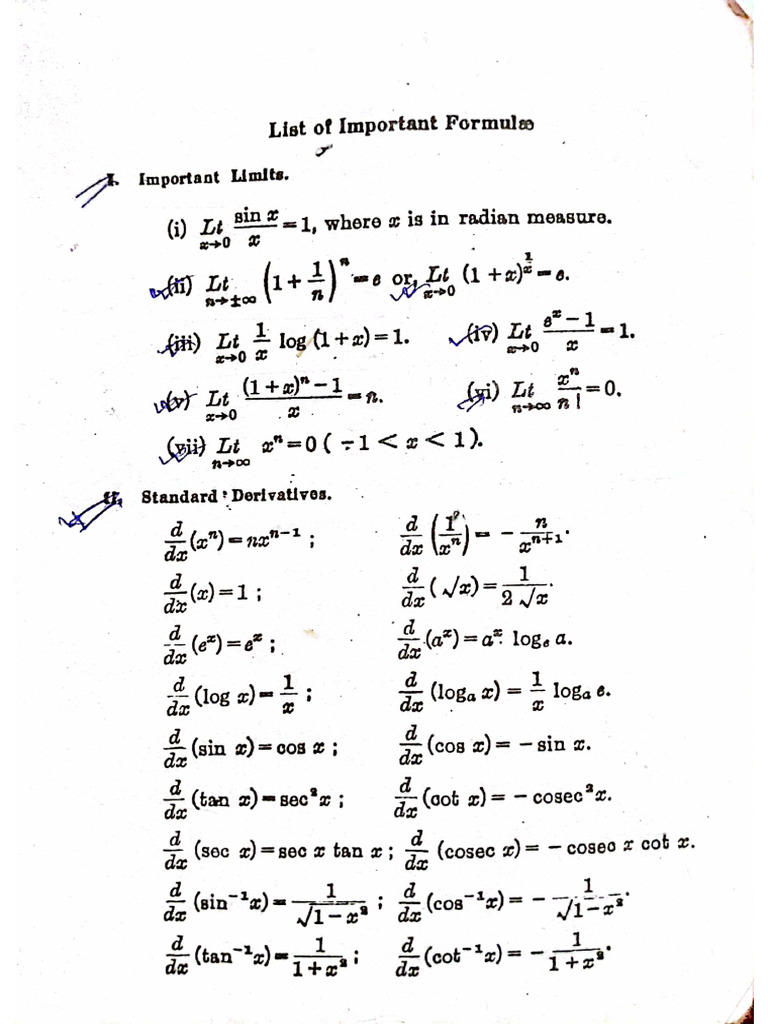 List of Important Formulæ
I. Important Limits.
(i) Lt_{x→0} sin x / x = 1, where x is in radian measure.
(ii) Lt_{n→±∞} (1 + 1/n)^n = e or, Lt_{x→0} (1 + x)^{1/x} = e.
(iii) Lt_{x→0} 1/x log (1 + x) = 1. (iv) Lt_{x→0} (e^x − 1)/x = 1.
(v) Lt_{x→0} ((1 + x)^n − 1)/x = n. (vi) Lt_{n→∞} x^n / n! = 0.
(vii) Lt_{n→∞} x^n = 0 ( −1 < x < 1 ).
II. Standard Derivatives.
d/dx (x^n) = nx^{n−1} ; d/dx (1/x^n) = − n/x^{n+1}.
d/dx (x) = 1 ; d/dx (√x) = 1/(2√x).
d/dx (e^x) = e^x ; d/dx (a^x) = a^x log_e a.
d/dx (log x) = 1/x ; d/dx (log_a x) = 1/x log_a e.
d/dx (sin x) = cos x ; d/dx (cos x) = − sin x.
d/dx (tan x) = sec²x ; d/dx (cot x) = − cosec²x.
d/dx (sec x) = sec x tan x ; d/dx (cosec x) = − cosec x cot x.
d/dx (sin⁻¹x) = 1/√(1−x²) ; d/dx (cos⁻¹x) = − 1/√(1−x²).
d/dx (tan⁻¹x) = 1/(1+x²) ; d/dx (cot⁻¹x) = − 1/(1+x²).